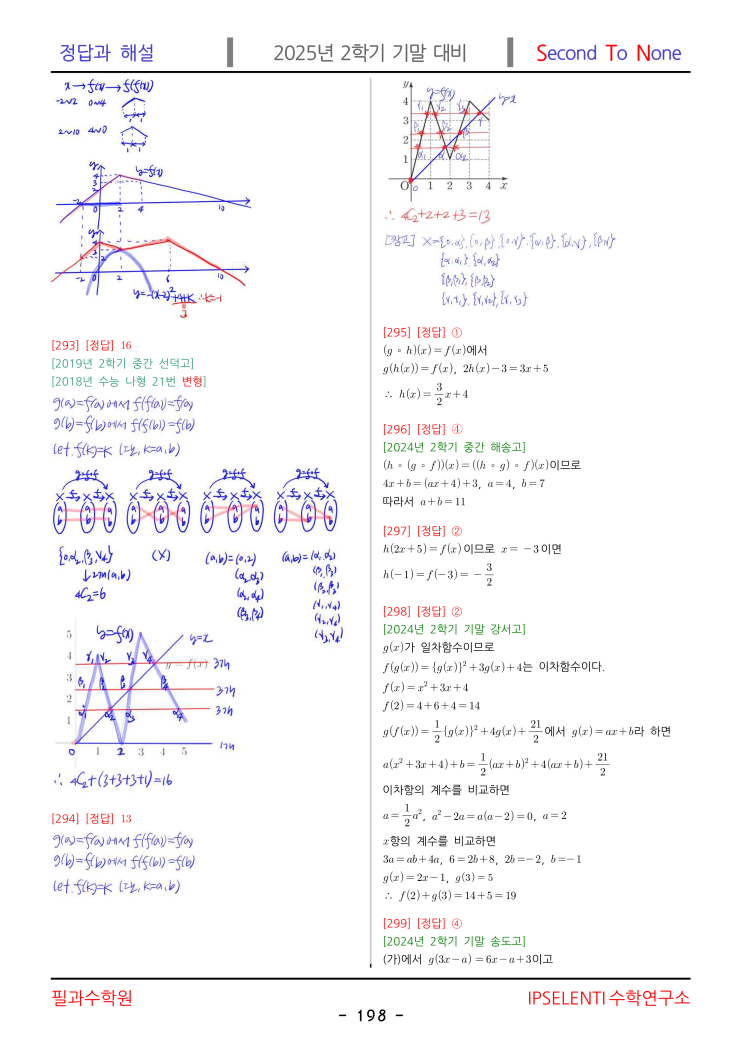 정답과 해설
2025년 2학기 기말 대비
Second To None
x→f(x)→f(f(x))
-2~2 0~4
2~10 4~0
y=f(x)
y=-(x-2)²+4+k ∴k=-1
[293] [정답] 16
[2019년 2학기 중간 선덕고]
[2018년 수능 나형 21번 변형]
g(a)=f(a)에서 f(f(a))=f(a)
g(b)=f(b)에서 f(f(b))=f(b)
let f(k)=k (단, k=a,b)
g=f∘f g=f∘f g=f∘f g=f∘f
X f X f X X f X f X X f X f X X f X f X
{0,α₂,β₃,γ₄} (X) (a,b)=(0,2) (a,b)=(α₁,α₂)
↓2개(a,b)
₄C₂=6
y=f(x)
y=x
y = f(x)
3개
3개
3개
1개
∴ ₄C₂+(3+3+3+1)=16
[294] [정답] 13
g(a)=f(a)에서 f(f(a))=f(a)
g(b)=f(b)에서 f(f(b))=f(b)
let f(k)=k (단, k=a,b)
y=f(x)
y=x
∴ ₄C₂+2+2+3=13
[참고] X={0,α}, {0,β}, {0,γ}, {α,β}, {α,γ}, {β,γ}
{α,α₁}, {α,α₂}
{β,β₁}, {β,β₂}
{γ,γ₁}, {γ,γ₂}, {γ,γ₃}
[295] [정답] ①
(g∘h)(x)=f(x)에서
g(h(x))=f(x), 2h(x)-3=3x+5
∴ h(x)=3/2x+4
[296] [정답] ④
[2024년 2학기 중간 해송고]
(h∘(g∘f))(x)=((h∘g)∘f)(x)이므로
4x+b=(ax+4)+3, a=4, b=7
따라서 a+b=11
[297] [정답] ②
h(2x+5)=f(x)이므로 x=-3이면
h(-1)=f(-3)=-3/2
[298] [정답] ②
[2024년 2학기 기말 강서고]
g(x)가 일차함수이므로
f(g(x))={g(x)}²+3g(x)+4는 이차함수이다.
f(x)=x²+3x+4
f(2)=4+6+4=14
g(f(x))=1/2{g(x)}²+4g(x)+21/2에서 g(x)=ax+b라 하면
a(x²+3x+4)+b=1/2(ax+b)²+4(ax+b)+21/2
이차항의 계수를 비교하면
a=1/2a², a²-2a=a(a-2)=0, a=2
x항의 계수를 비교하면
3a=ab+4a, 6=2b+8, 2b=-2, b=-1
g(x)=2x-1, g(3)=5
∴ f(2)+g(3)=14+5=19
[299] [정답] ④
[2024년 2학기 기말 송도고]
(가)에서 g(3x-a)=6x-a+3이고
필과수학원
IPSELENTI 수학연구소
- 198 -